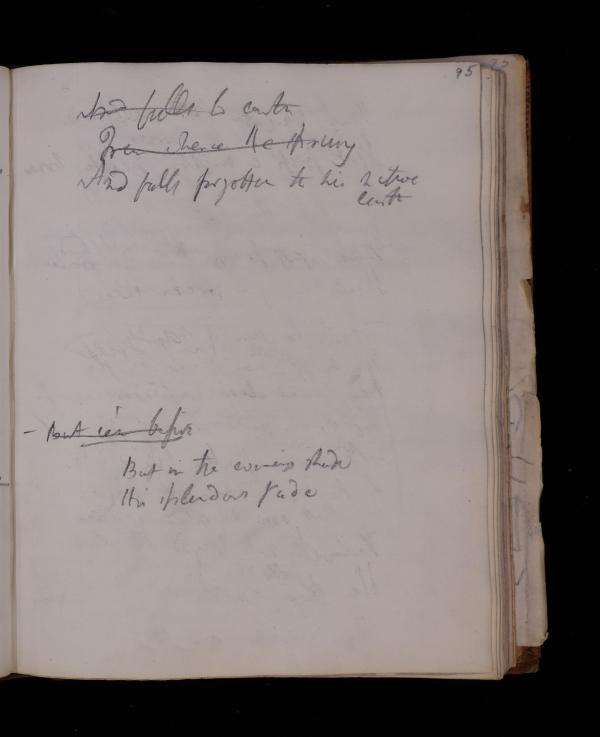 95
And falls to earth
From whence He sprung
And falls forgotten to his native
earth
- But ere before
But in the evenings shade
His splendours fade